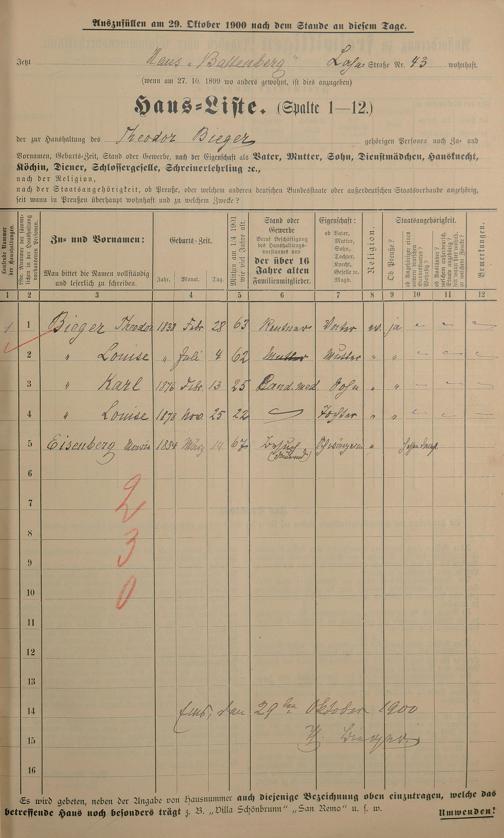 Auszufüllen am 29. Oktober 1900 nach dem Stande an diesem Tage.
Jetzt Haus „Battenberg“ Straße Nr. 43 wohnhaft.
(wenn am 27. 10. 1899 wo anders gewohnt, ist dies anzugeben)
Haus=Liste. (Spalte 1—12.)
der zur Haushaltung des Theodor Bieger gehörigen Personen nach Zu= und
Vornamen, Geburts=Zeit, Stand oder Gewerbe, nach der Eigenschaft als Vater, Mutter, Sohn, Dienstmädchen, Hausknecht,
Köchin, Diener, Schlossergeselle, Schreinerlehrling ꝛc.,
nach der Religion,
nach der Staatsangehörigkeit, ob Preuße, oder welchem anderen deutschen Bundesstaate oder außerdeutschen Staatsverbande angehörig,
seit wann in Preußen überhaupt wohnhaft und zu welchem Zwecke?
Zu= und Vornamen:
Man bittet die Namen vollständig
und leserlich zu schreiben.
Geburts=Zeit.
Jahr. Monat. Tag.
Stand oder
Gewerbe
der über 16
Jahre alten
Familienmitglieder.
Eigenschaft:
ob Vater,
Mutter,
Sohn,
Tochter,
Knecht,
Geselle u.
Magd.
Religion.
Staatsangehörigkeit.
Ob Preuße?
Bemerkungen.
1 2 3 4 5 6 7 8 9 10 11 12
1 1 Bieger Theodor 1838 Febr 28 63 Rentner Vater ev. ja
2 „ Louise „ Juli 4 62 Mutter Mutter „ „
3 „ Karl 1876 Febr. 13 25 Cand. med. Sohn „ „
4 „ Louise 1878 Nov. 25 22 Tochter „ „
5 Eisenberg 1834 März 14 67 Besuch „
6
7
8
9
10
11
12
13
14
15
16
2
3
0
Ems, den 29ten Oktober 1900
Es wird gebeten, neben der Angabe von Hausnummer auch diejenige Bezeichnung oben einzutragen, welche das
betreffende Haus noch besonders trägt z. B. „Villa Schönbrunn“ „San Remo“ u. s. w.
Umwenden!